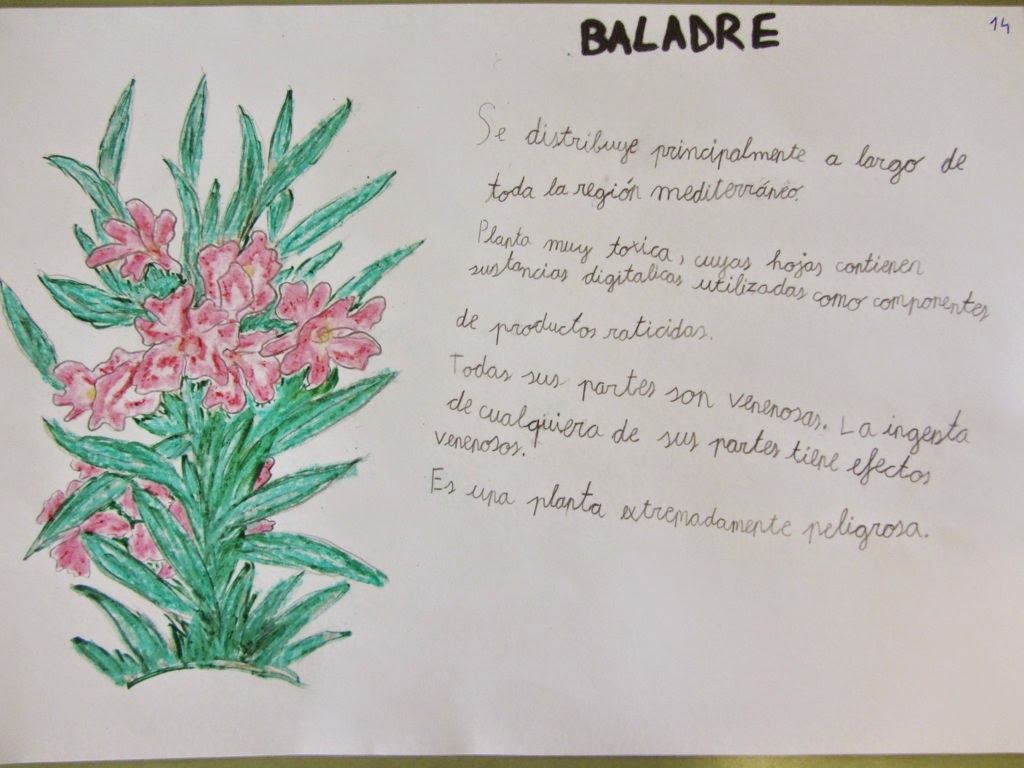 BALADRE
14
Se distribuye principalmente a largo de
toda la región mediterráneo.
Planta muy toxica, cuyas hojas contienen
sustancias digitalicas utilizadas como componentes
de productos raticidas.
Todas sus partes son venenosas. La ingesta
de cualquiera de sus partes tiene efectos
venenosos.
Es una planta extremadamente peligrosa.